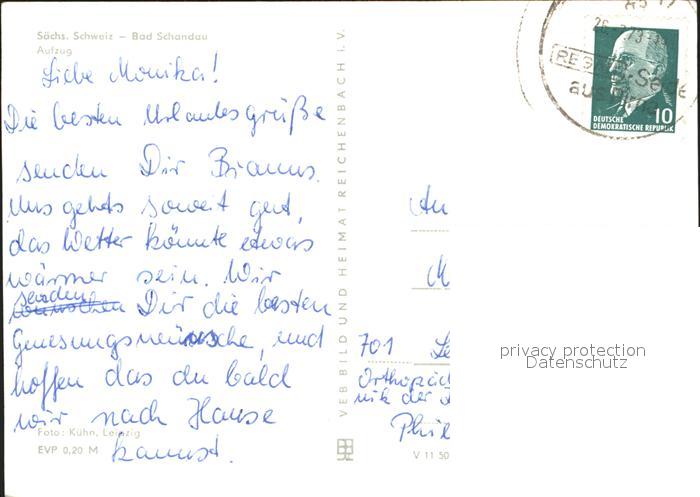 Sächs. Schweiz — Bad Schandau
Aufzug
Liebe Monika!
Die besten Urlaubsgrüße
senden Dir Brauns.
Uns gehts soweit gut,
das Wetter könnte etwas
wärmer sein. Wir
senden
wünschen Dir die besten
Genesungswünsche, und
hoffen das du bald
wir nach Hause
kannst.
Foto: Kühn, Leipzig
EVP 0,20 M
VEB BILD UND HEIMAT REICHENBACH I. V.
V 11 50
DEUTSCHE
DEMOKRATISCHE REPUBLIK
10
An
M
701 Le
Orthopäd
nik der
Phil
privacy protection
Datenschutz